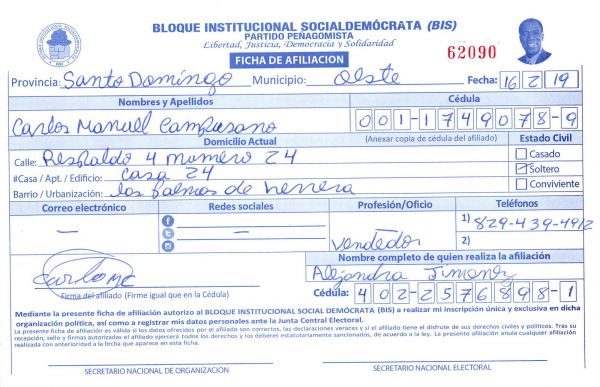 BLOQUE INSTITUCIONAL SOCIALDEMÓCRATA (BIS)
PARTIDO PEÑAGOMISTA
Libertad, Justicia, Democracia y Solidaridad
62090
FICHA DE AFILIACION
Provincia: Santo Domingo Municipio: Oeste Fecha: 16 2 19
Nombres y Apellidos
Cédula
Carlos Manuel Campusano
001-1749078-9
Domicilio Actual
(Anexar copia de cédula del afiliado)
Estado Civil
Calle: Respaldo 4 numero 24
Casado
#Casa / Apt. / Edificio: Casa 24
Soltero
Barrio / Urbanización: los palmas de herrera
Conviviente
Correo electrónico
Redes sociales
Profesión/Oficio
Teléfonos
1) 829-439-4912
2)
vendedor
Nombre completo de quien realiza la afiliación
Alejandra Jimenez
Firma del afiliado (Firme igual que en la Cédula)
Cédula: 402-2576898-1
Mediante la presente ficha de afiliación autorizo al BLOQUE INSTITUCIONAL SOCIAL DEMÓCRATA (BIS) a realizar mi inscripción única y exclusiva en dicha
organización política, así como a registrar mis datos personales ante la Junta Central Electoral.
La presente ficha de afiliación es válida si los datos ofrecidos por el afiliado son correctos, las declaraciones veraces y si el afiliado tiene el disfrute de sus derechos civiles y políticos. Tras su
recepción, sello y firmas autorizadas el afiliado ejercerá todos los derechos y los deberes estatutariamente sancionados, de acuerdo a la ley. La presente afiliación anula cualquier afiliación
realizada con anterioridad a la fecha que aparece en esta ficha.
SECRETARIO NACIONAL DE ORGANIZACIÓN
SECRETARIO NACIONAL ELECTORAL